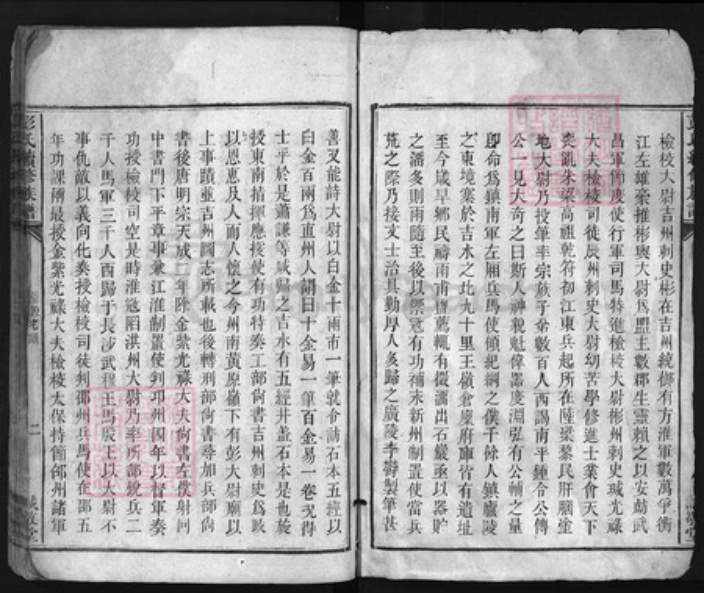 檢校大尉吉州刺史彬在吉州統鄉有方淮軍數萬爭衡
江左雄豪推彬輿大尉爲盟主數郡生靈賴之以安勣武
昌軍節度使行軍司馬特進檢校大尉彬州刺史瑊光祿
大夫檢校司徒辰州刺史大尉幼苦學修進士業會天下
喪亂朱梁高祖乾符初江東兵起所在陸梁黎民肝腦塗
地大尉乃投筆率宗族子弟數百人西謁南平鍾令公傳
公一見大奇之曰斯人神貌魁偉器度淵弘有公輔之量
卽命爲鎮南軍左厢兵馬使領紀綱之僕千餘人鎮廬陵
之東境寨於吉水之北九十里王嶺倉廩府庫皆有遺址
至今歲旱鄉民禱雨南薦輒有微瀟出石巖亟以器貯
之潘多則雨隨至後以禦寇有功補永新州制置使當兵
荒之際乃接文士治具勤厚人多歸之廣陵李濤製筆甚
善又能詩大尉以白金十兩市一筆就令訪石本五經以
白金百兩爲直州人謂曰十金易一筆百金易一卷况得
士乎於是蕭謙等咸歸之吉水有五經井盖石本是也旋
授東南招揮應援使有功特奏工部尙書吉州刺史爲政
以恩惠及人而人懷之今州南黃原嶺下有彭大尉廟以
上事蹟並吉州圖志所載也後轉刑部尙書尋加兵部尙
書後唐明宗天成二年除金紫光祿大夫尙書左僕射同
中書門下平章事兼江淮制置使判邛州囚年以督軍奏
功授檢校司空是時淮寇陷洪州大尉乃率所部統兵二
千人馬軍三千人西歸于長沙武穆王馬殷王以大尉不
事仇敵以義向化奏授檢校司徒判郡州兵馬使在郡五
年功課傋最授金紫光祿大夫檢校太保持節邵州諸軍
彭氏續修族譜
二